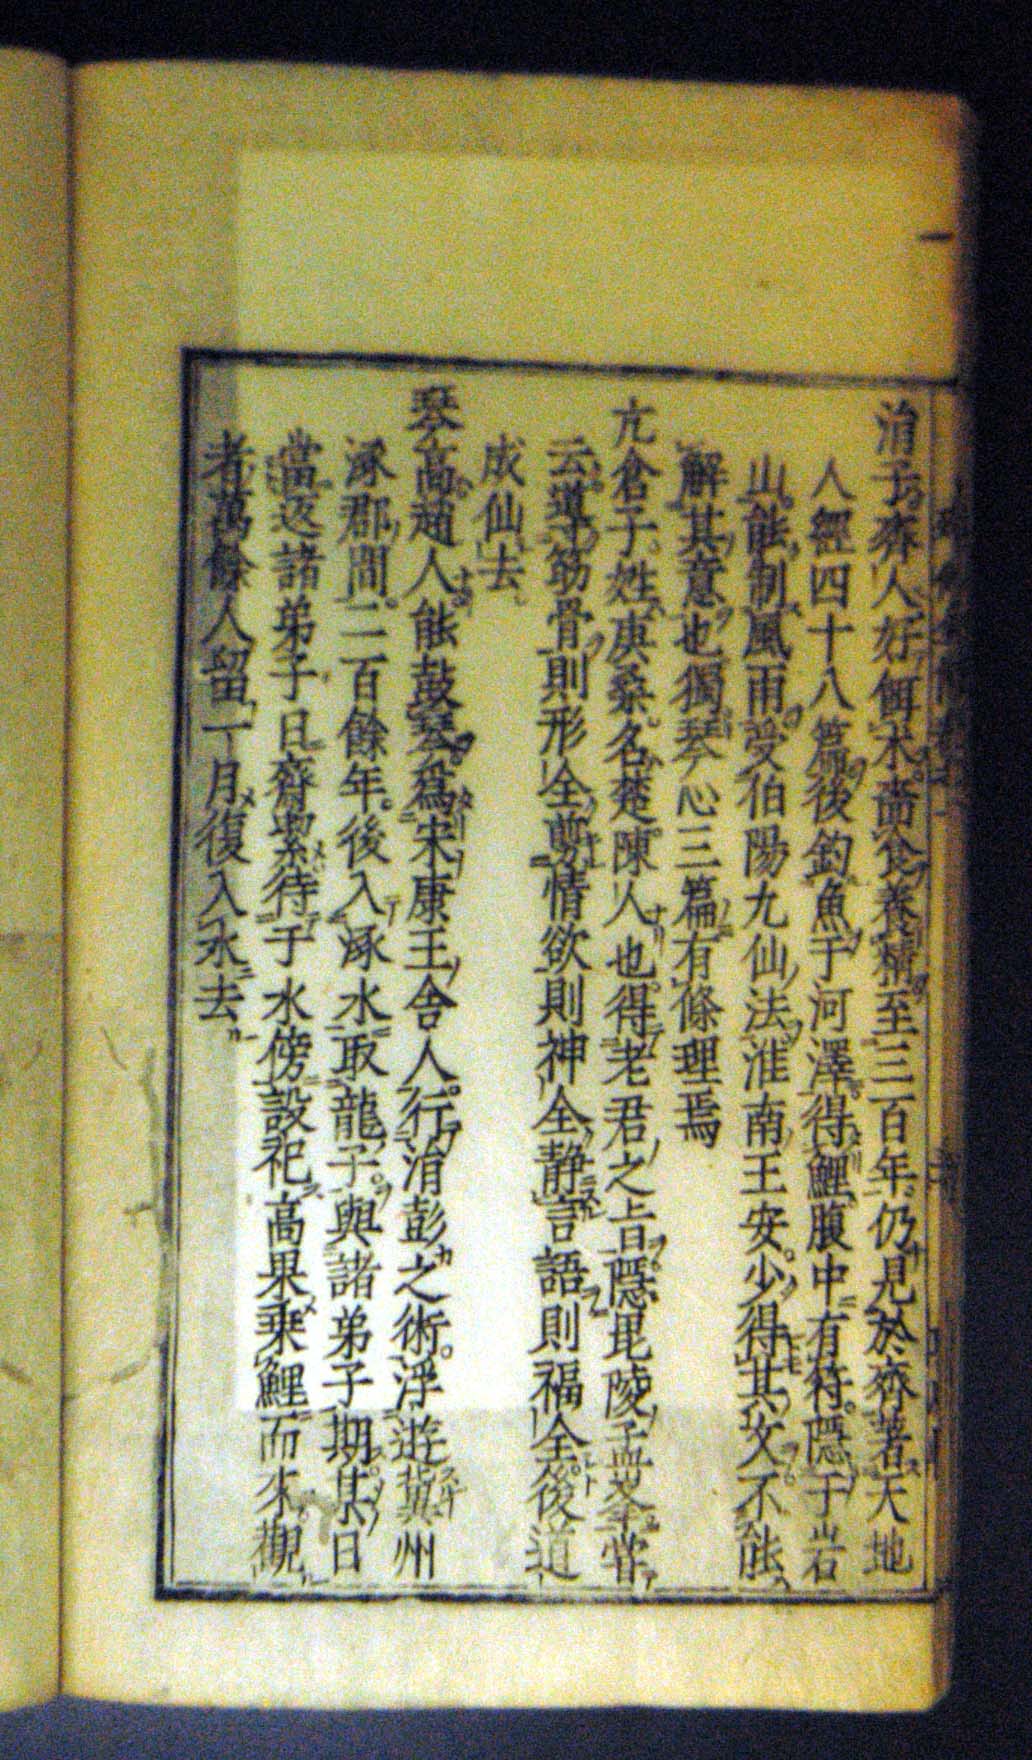 涓子齊人好餌朮啬食養精至三百年仍見於齊著天地
人經四十八篇後釣魚于河澤得鯉腹中有符隱于岩
山能制風雨受伯陽九仙法淮南王安少得其文不能
解其意也獨琴心三篇有條理焉
亢倉子姓庚桑名楚陳人也得老君之旨隱毘陵孟峯嘗
云導筋骨則形全剪情欲則神全静言語則福全後道
成仙去
琴高趙人能鼓琴爲宋康王舍人行涓彭之術浮遊冀州
涿郡間二百餘年後入涿水取龍子與諸弟子期某日
當返諸弟子日齋潔待于水傍設祀高果乗鯉而來觀
者萬餘人留一月復入水去